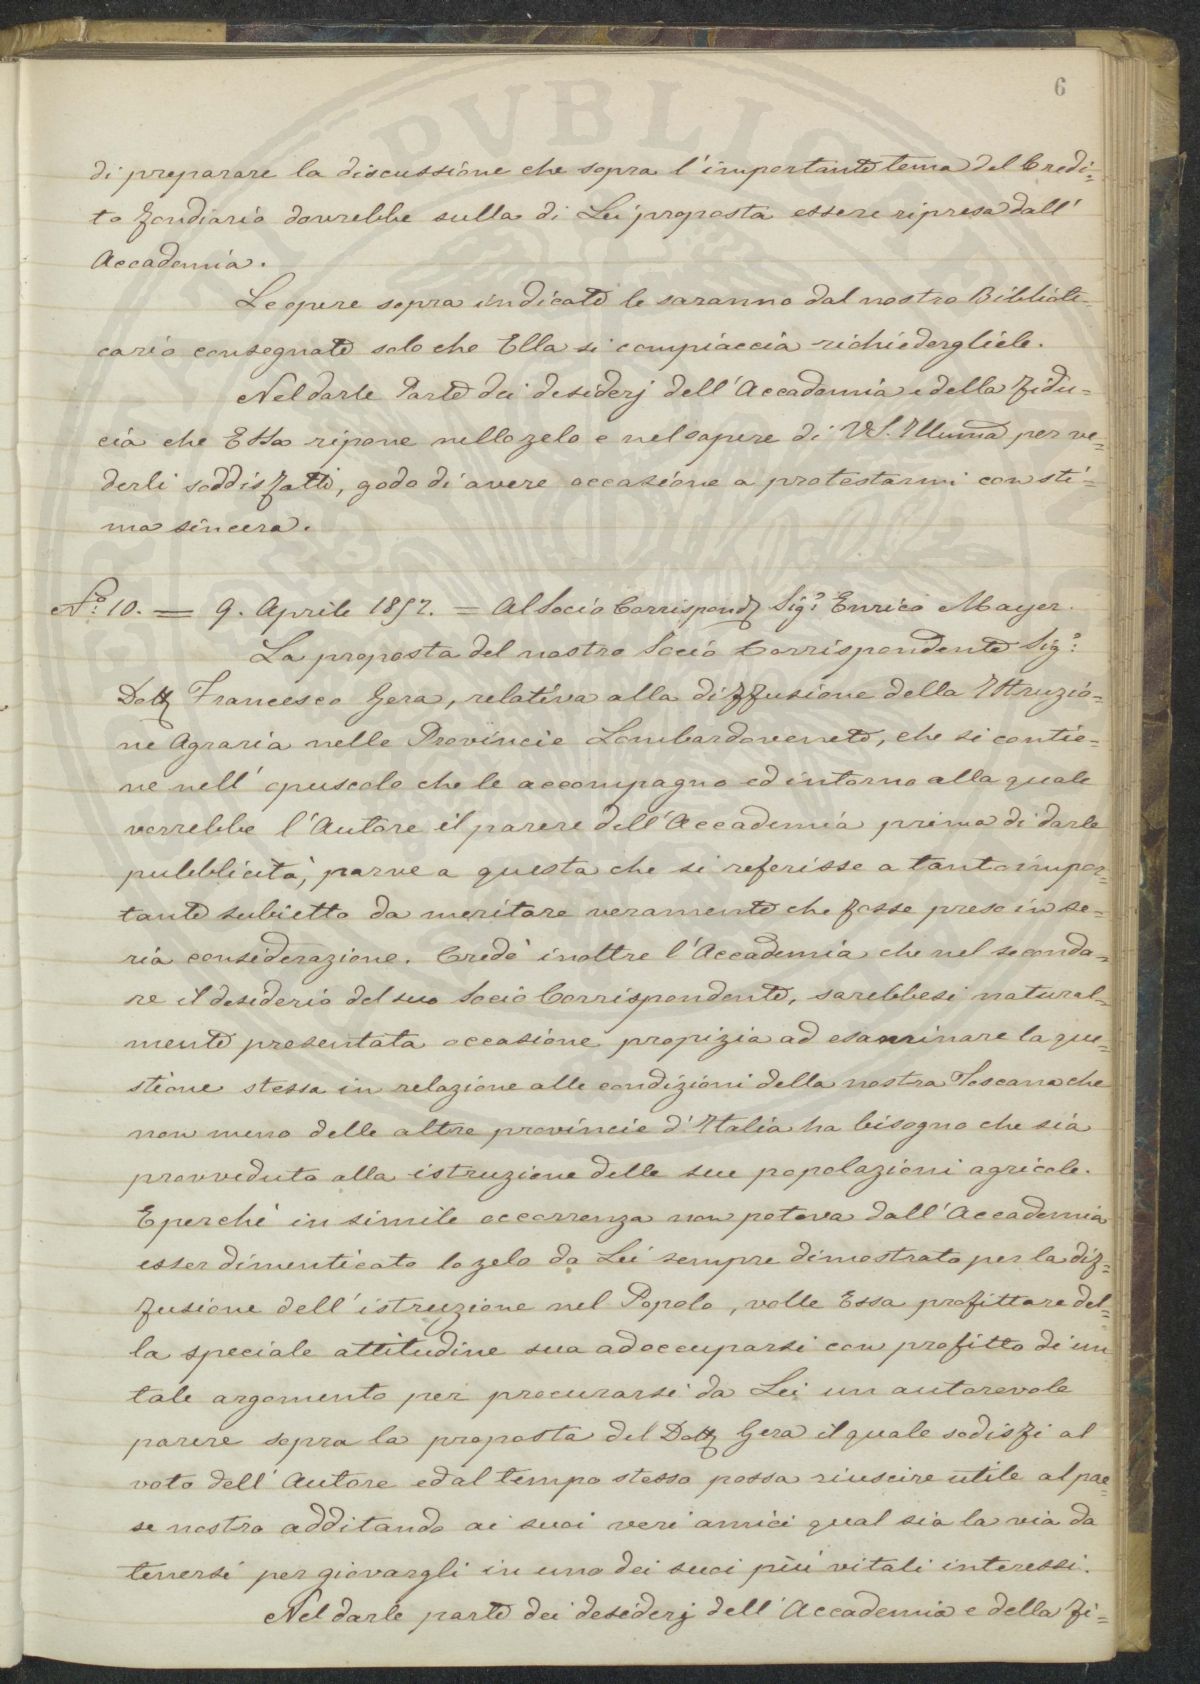 6
di preparare la discussione che sopra l'importante tema del Credi=
to fondiario dovrebbe sulla di Lei proposta essere ripresa dall'
Accademia.
Le opere sopra indicate le saranno dal nostro Bibliote-
cario consegnate solo che Ella si compiaccia richiedergliele.
Nel darle Parte dei desiderj dell'Accademia e della fidu=
cia che Essa ripone nello zelo e nel sapere di V.S. Illuma per ve=
derli soddisfatti, godo di avere occasione a protestarmi con sti=
ma sincera.
No: 10. = 9. Aprile 1857. = Al Socio Corrispond. Sigr. Enrico Mayer.
La proposta del nostro Socio Corrispondente Sigr.
Dott. Francesco Gera, relativa alla diffusione della Istruzio=
ne Agraria nelle Provincie Lombardovenete, che si contie=
ne nell'opuscolo che le accompagno ed intorno alla quale
vorrebbe l'Autore il parere dell'Accademia prima di darle
pubblicità, parve a questa che si referisse a tanto impor=
tante subietto da meritare veramente che fosse preso in se=
ria considerazione. Credè inoltre l'Accademia che nel seconda=
re il desiderio del suo Socio Corrispondente, sarebbesi natural=
mente presentata occasione propizia ad esaminare la que=
stione stessa in relazione alle condizioni della nostra Toscana che
non meno delle altre provincie d'Italia ha bisogno che sia
provveduto alla istruzione delle sue popolazioni agricole.
E perchè in simile occorrenza non poteva dall'Accademia
esser dimenticato lo zelo da Lei sempre dimostrato per la dif=
fusione dell'istruzione nel Popolo, volle Essa profittare del=
la speciale attitudine sua ad occuparsi con profitto di un
tale argomento per procurarsi da Lei un autorevole
parere sopra la proposta del Dott. Gera il quale sodisfi al
voto dell'Autore ed al tempo stesso possa riuscire utile al pae=
se nostro additando ai suoi veri amici qual sia la via da
tenersi per giovargli in uno dei suoi più vitali interessi.
Nel darle parte dei desiderj dell'Accademia e della fi=